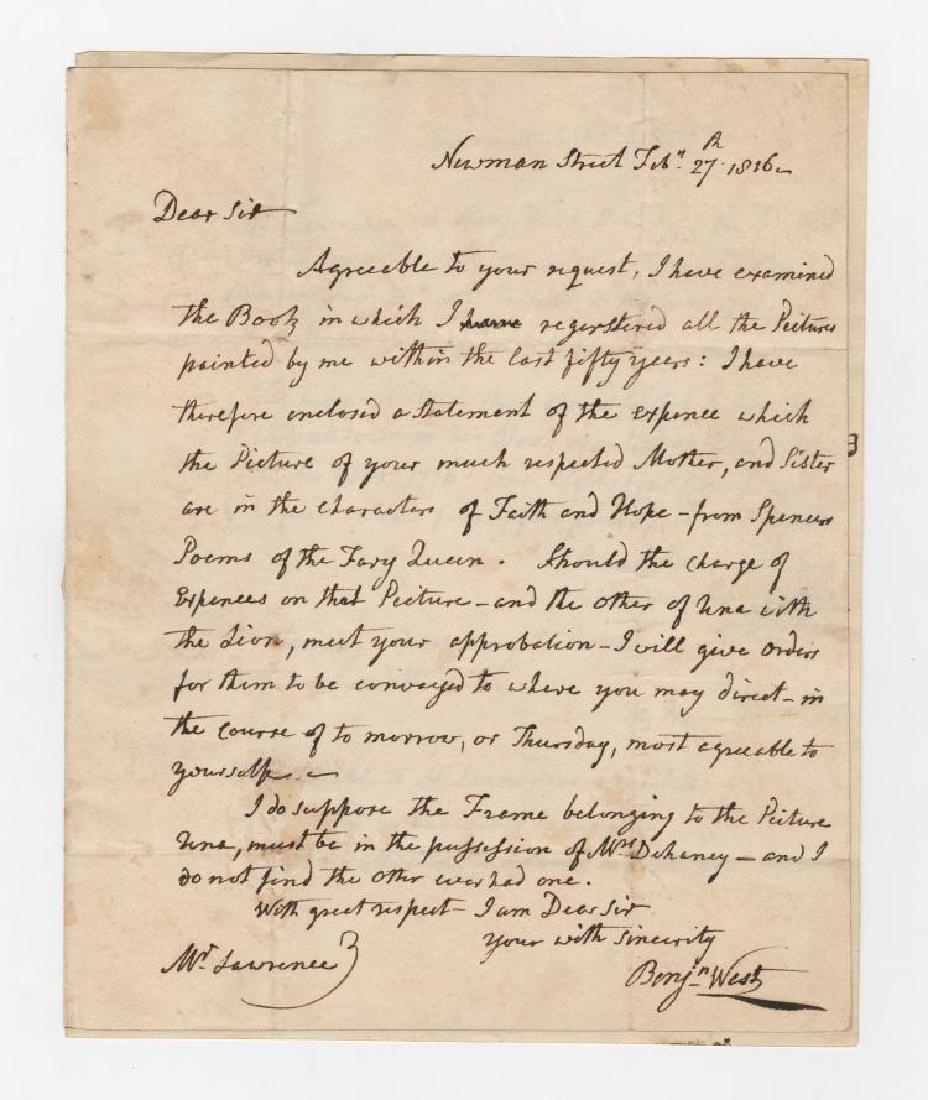 Newman Street Feby. 27th. 1816
Dear Sir
Agreeable to your request, I have examined
the Book in which I have registered all the Pictures
painted by me within the last fifty years: I have
therefore enclosed a statement of the expence which
the Picture of your much respected Mother, and Sister
are in the characters of Faith and Hope - from Spencers
Poems of the Fary Queen. Should the charge of
Expences on that Picture - and the other of Una with
the Lion, meet your approbation - I will give orders
for them to be convayed to where you may direct - in
the course of to morrow, or Thursday, most agreeable to
yourself.
I do suppose the Frame belonging to the Picture
Una, must be in the possession of Mrs Dehaney - and I
do not find the other ever had one.
With great respect - I am Dear Sir
your with sincerity
Mr. Lawrence
Benjn. West